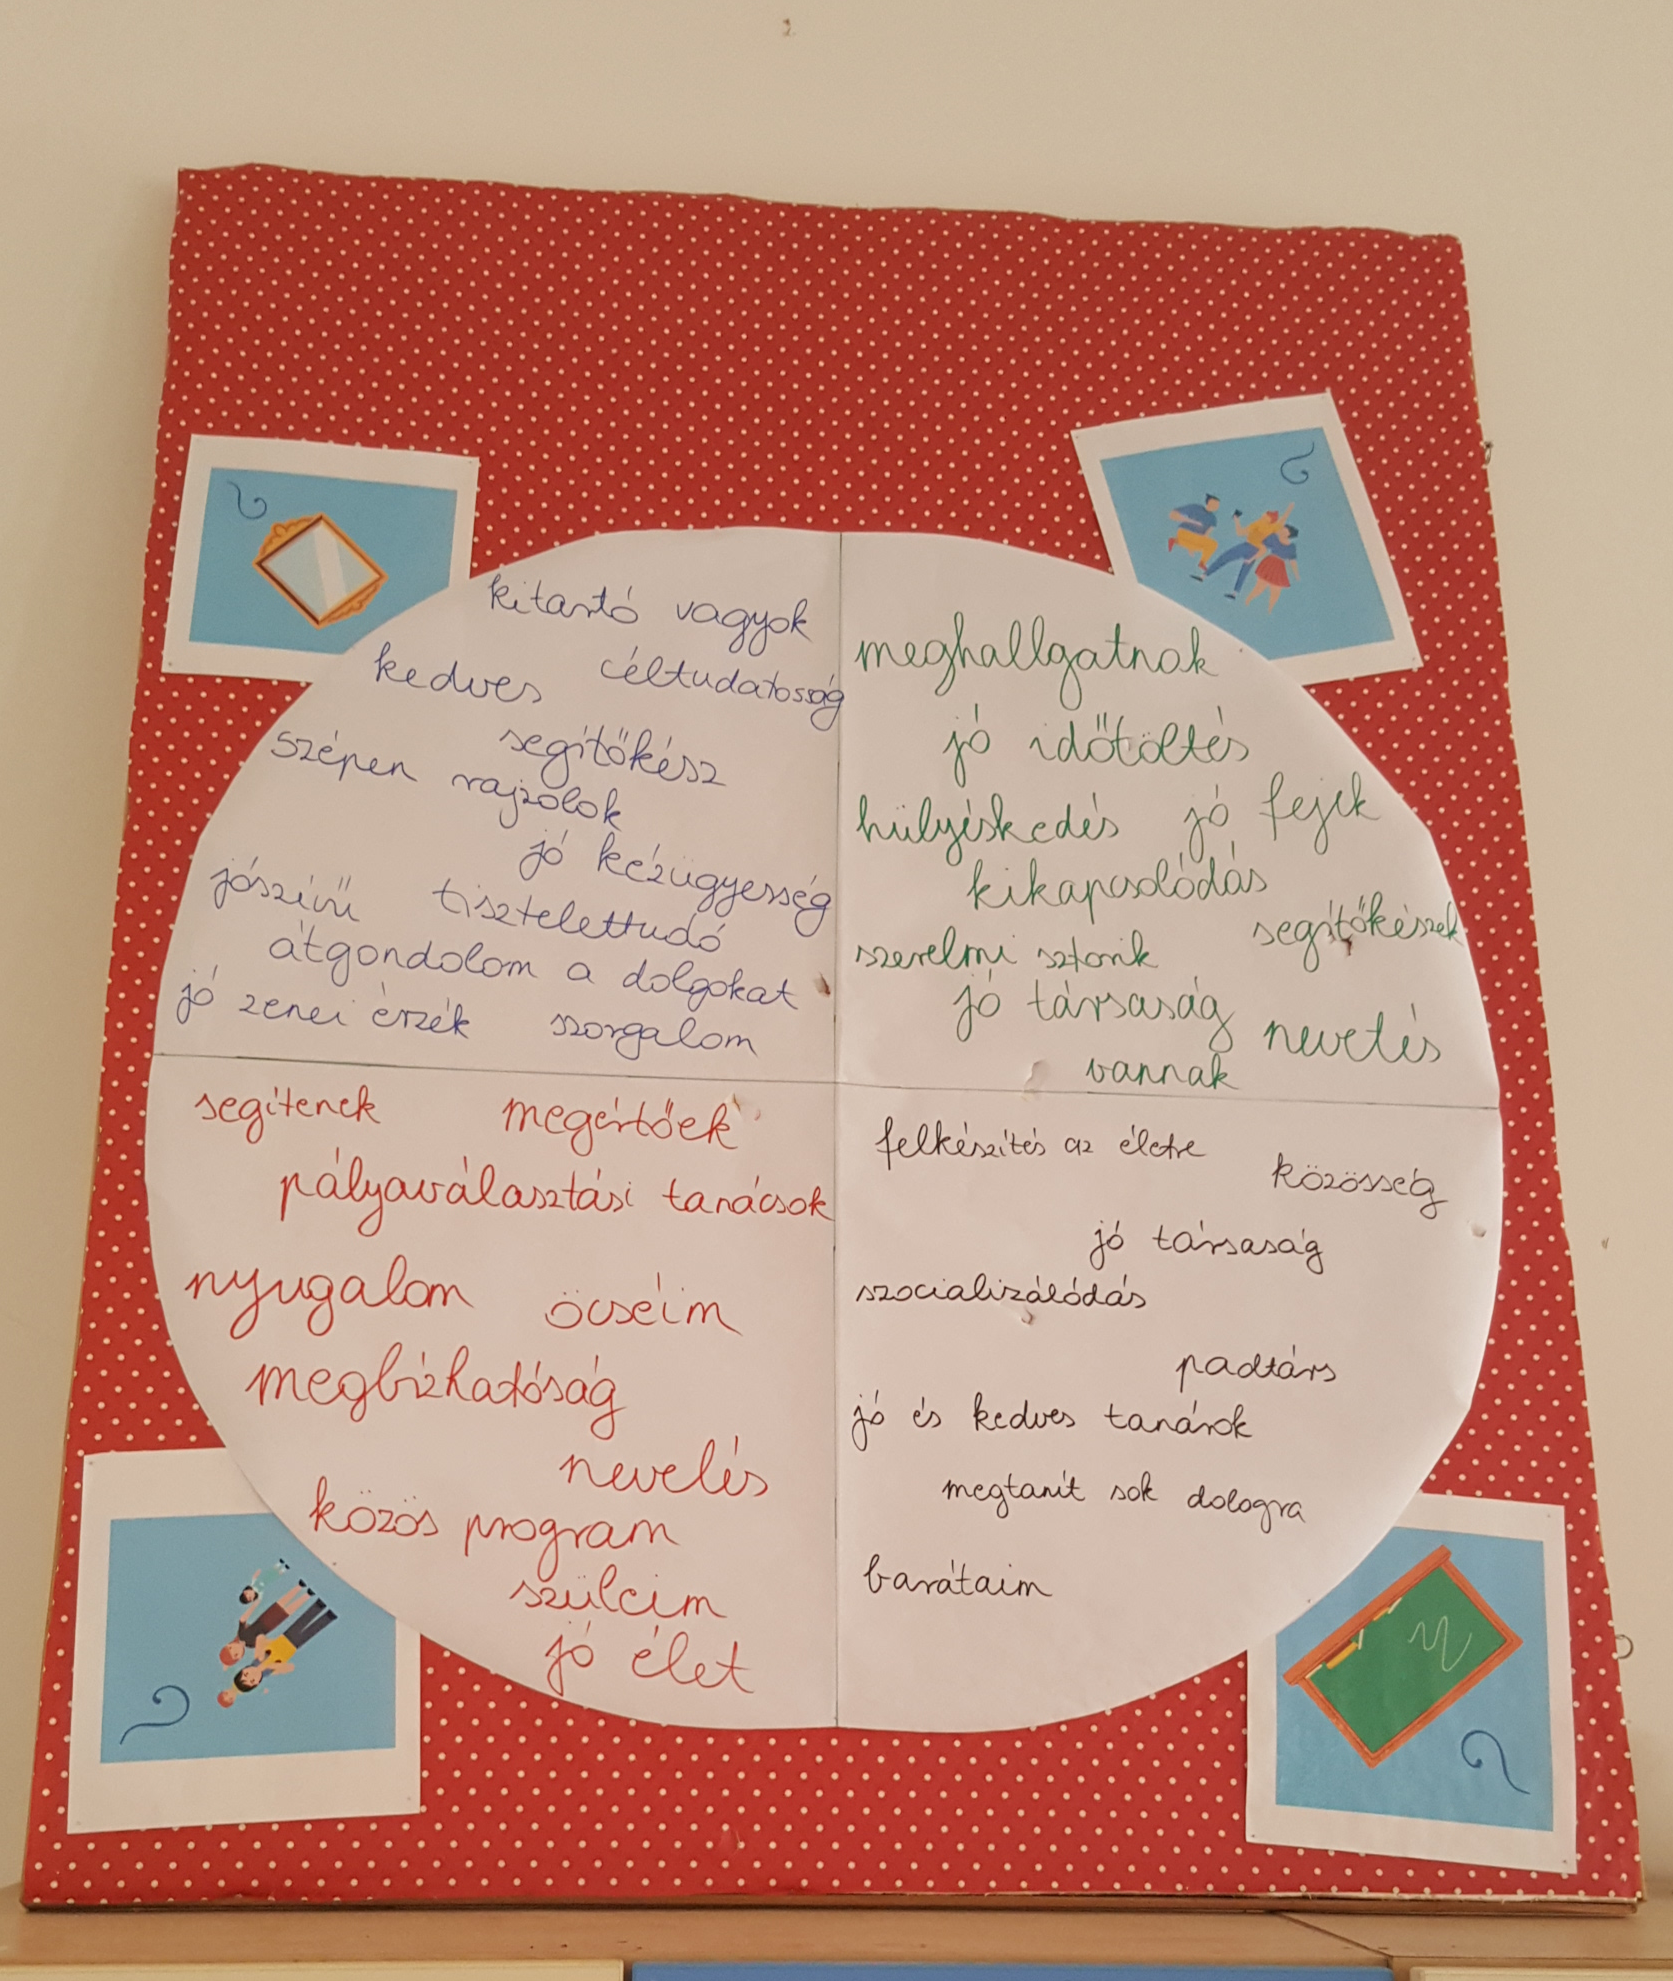 kitartó vagyok
kedves céltudatosság
segítőkész
szépen rajzolok
jó kézügyesség
jószívű tisztelettudó
átgondolom a dolgokat
jó zenei érzék szorgalom
meghallgatnak
jó időtöltés
hülyéskedés jó fejek
kikapcsolódás
segítőkészek
szerelmi sztorik
jó társaság
nevetés
vannak
segítenek megértőek
pályaválasztási tanácsok
nyugalom öcséim
megbízhatóság
nevelés
közös program
szüleim
jó élet
felkészítés az életre
közösség
jó társaság
szocializálódás
padtárs
jó és kedves tanárok
megtanít sok dologra
barátaim